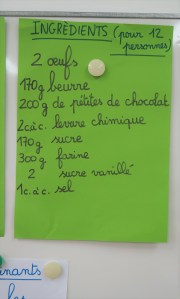 INGRÉDIENTS (pour 12
personnes)
2 œufs
170g beurre
200g de pépites de chocolat
2c.à c. levure chimique
170g sucre
300g farine
2 sucre vanillé
1c.à.c. sel
inants